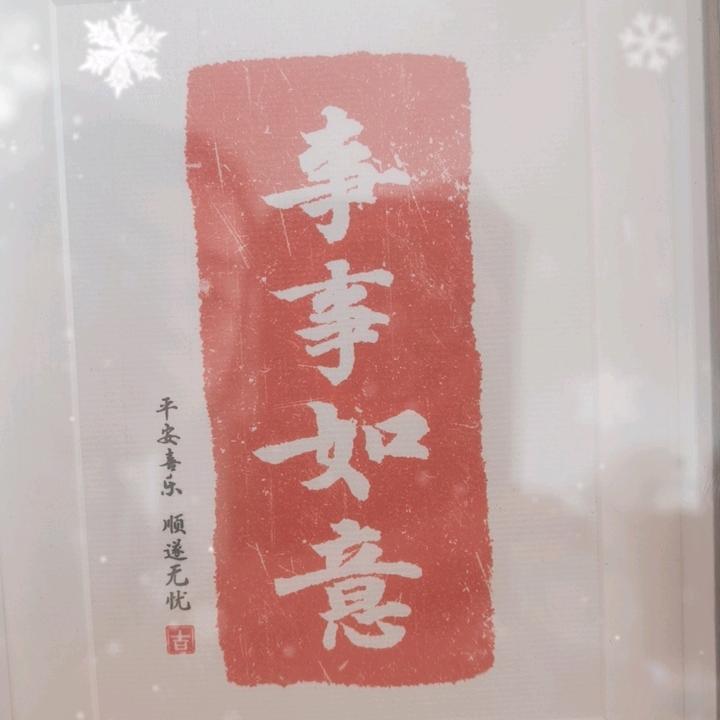 事事如意
平安喜乐 顺遂无忧
吉